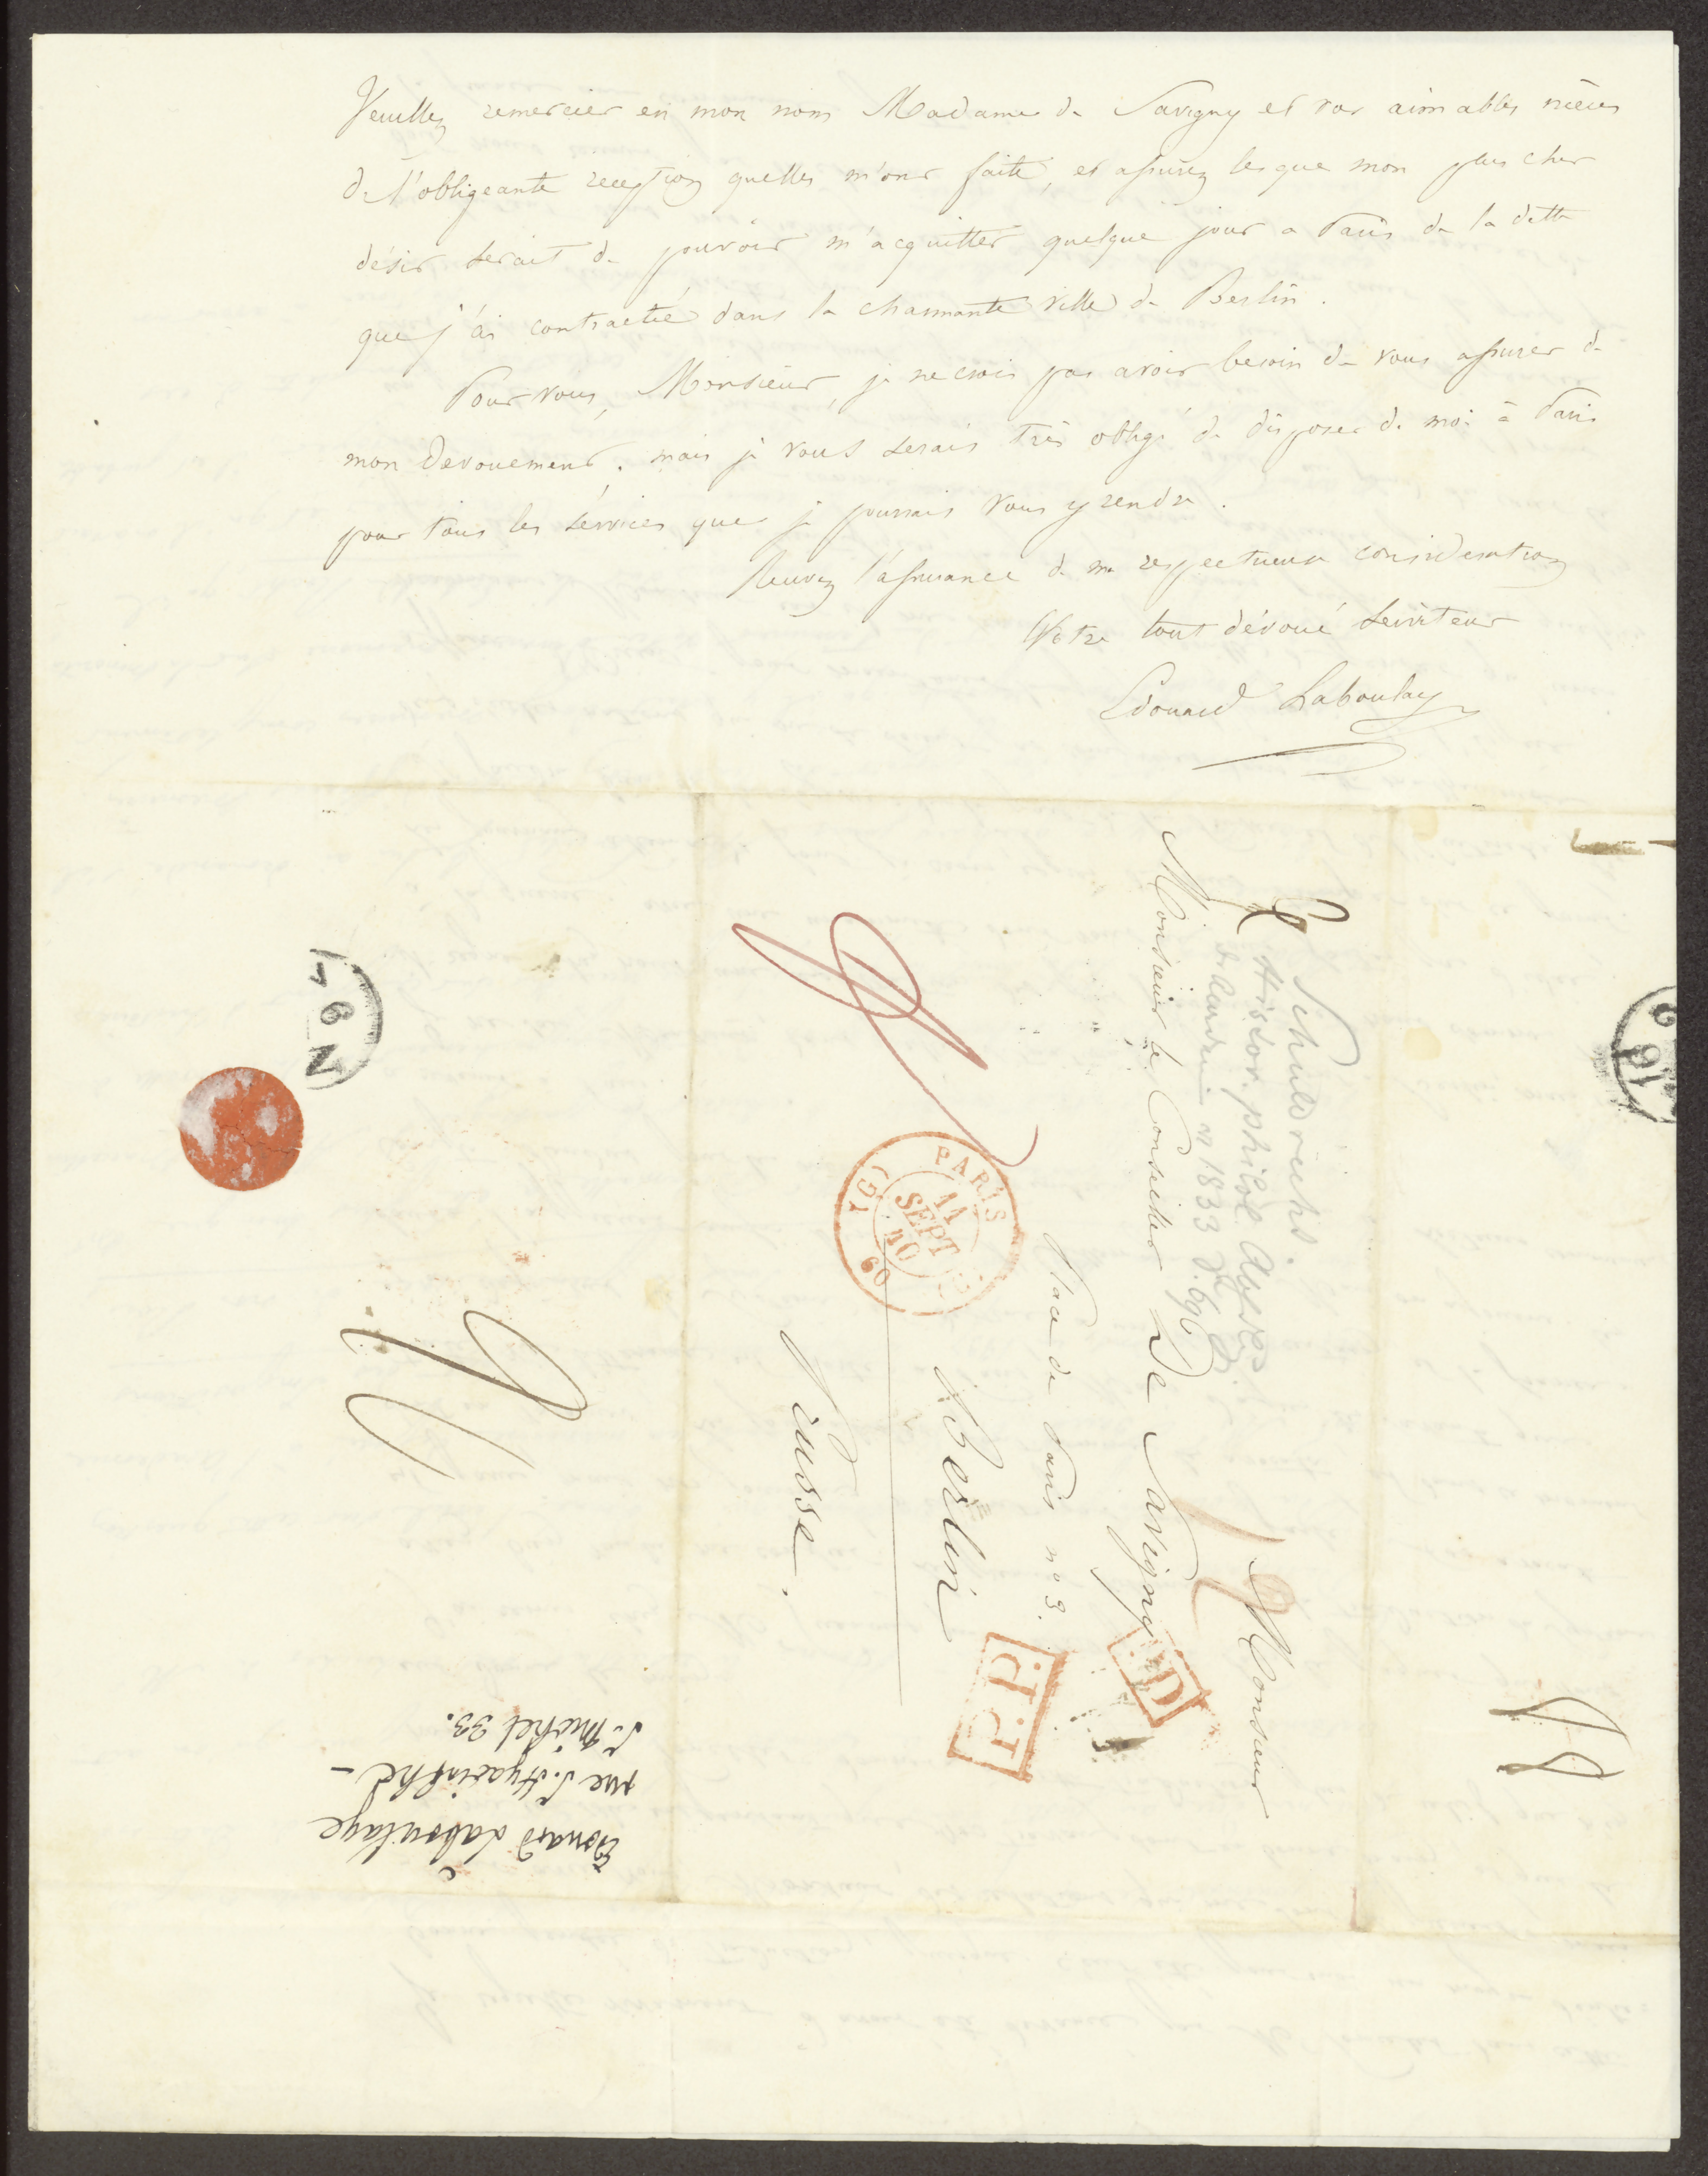 Veuillez remercier en mon nom Madame de Savigny et vos aimables nièces
de l'obligeante reception quelles m'ont faite, et assurez les que mon plus cher
désir serait de pouvoir m'acquitter quelque jour a Paris de la dette
que j'ai contractée dans la charmante ville de Berlin.
Pour vous, Monsieur, je ne crois pas avoir besoin de vous assurer de
mon devouement. mais je vous serais très obligé de disposer de moi à Paris
pour tous les services que je pourrais vous y rendre.
Recevez l'assurance de ma respectueuse consideration
Votre tout dévoué serviteur
Edouard Laboulaye
Monsieur
Monsieur le Conseiller De Savigny
Place de Paris n° 3.
Berlin
Prusse.
Schuldrechts.
Histor. philol.
1833
PARIS
11
SEPT
40
60
P.P.
P.D
N 6
Edouard Laboulaye
rue S. Hyacinthe -
S. Michel 33.